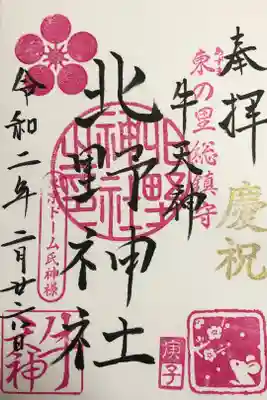 奉拝
慶祝
東の里総鎮守
牛天神
北野神社
東京ドーム氏神様
令和二年二月廿六日
庚子
牛天神